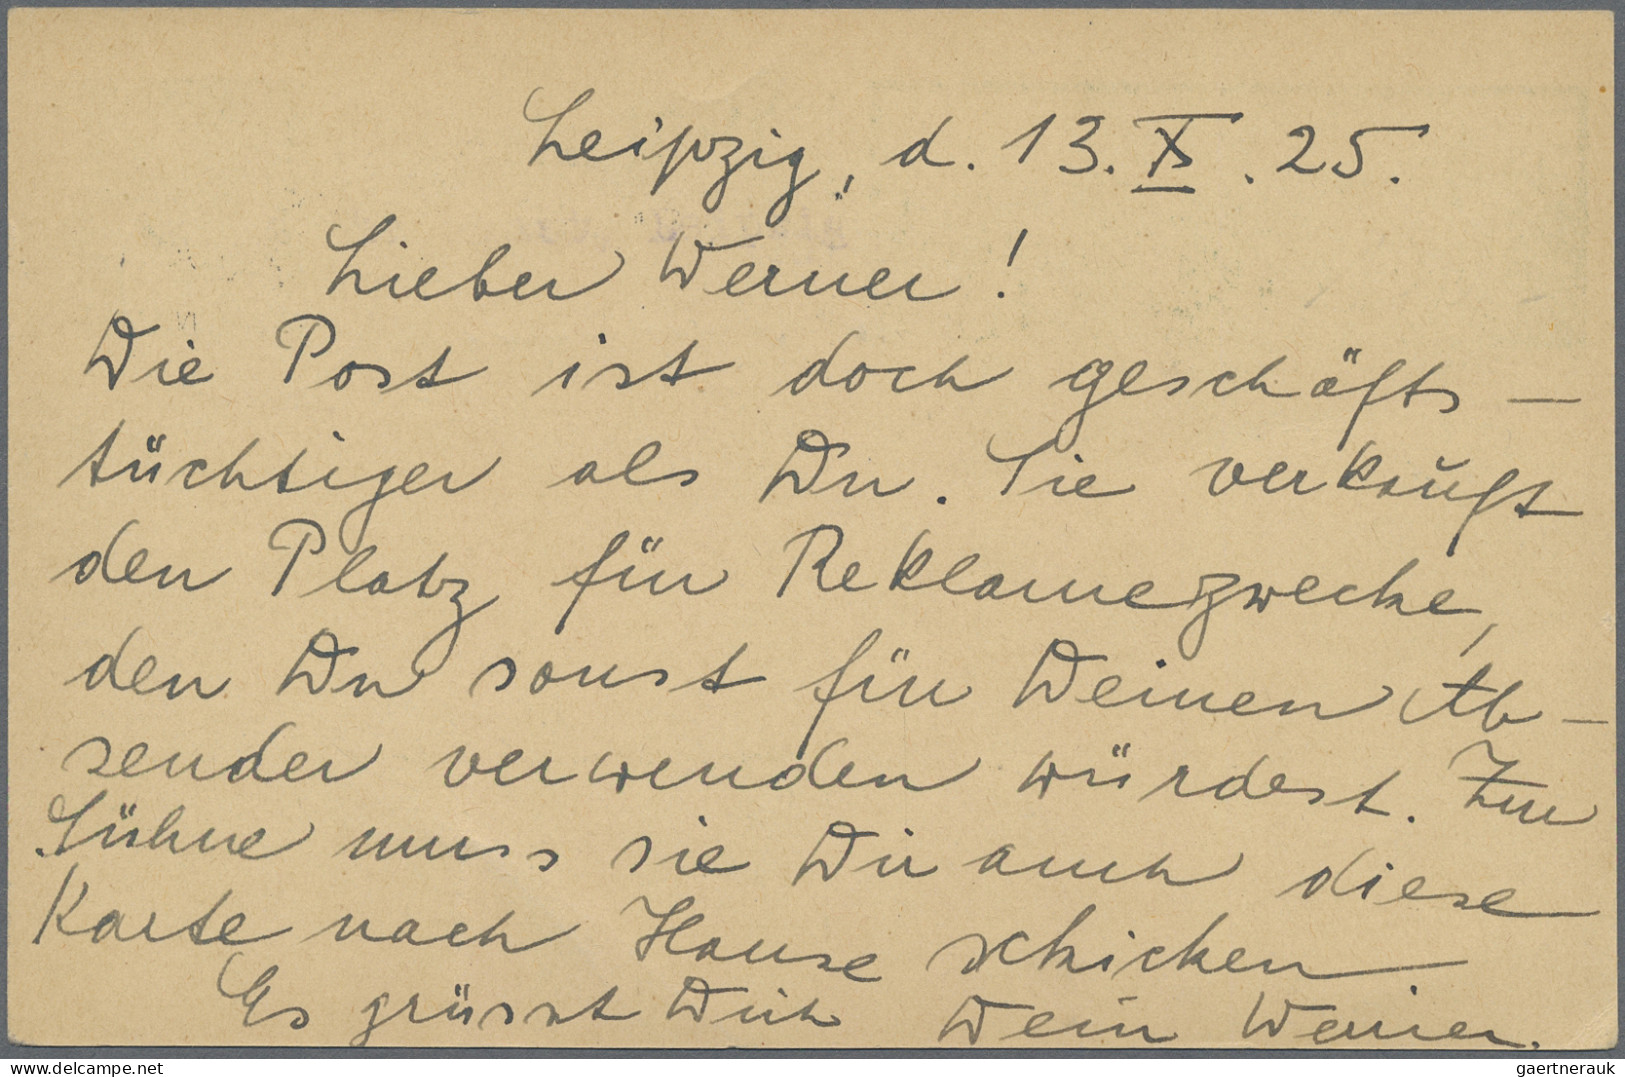 Leipzig, d. 13. X. 25.
Lieber Werner!
Die Post ist doch geschäfts-
tüchtiger als Du. Sie verkauft
den Platz für Reklamezwecke,
den Du sonst für Deinen Ab-
sender verwenden würdest. Zur
Sühne muss sie Dir auch diese
Karte nach Hause schicken
Es grüsst Dich Dein Werner.
delcampe.net
gaertnerauk